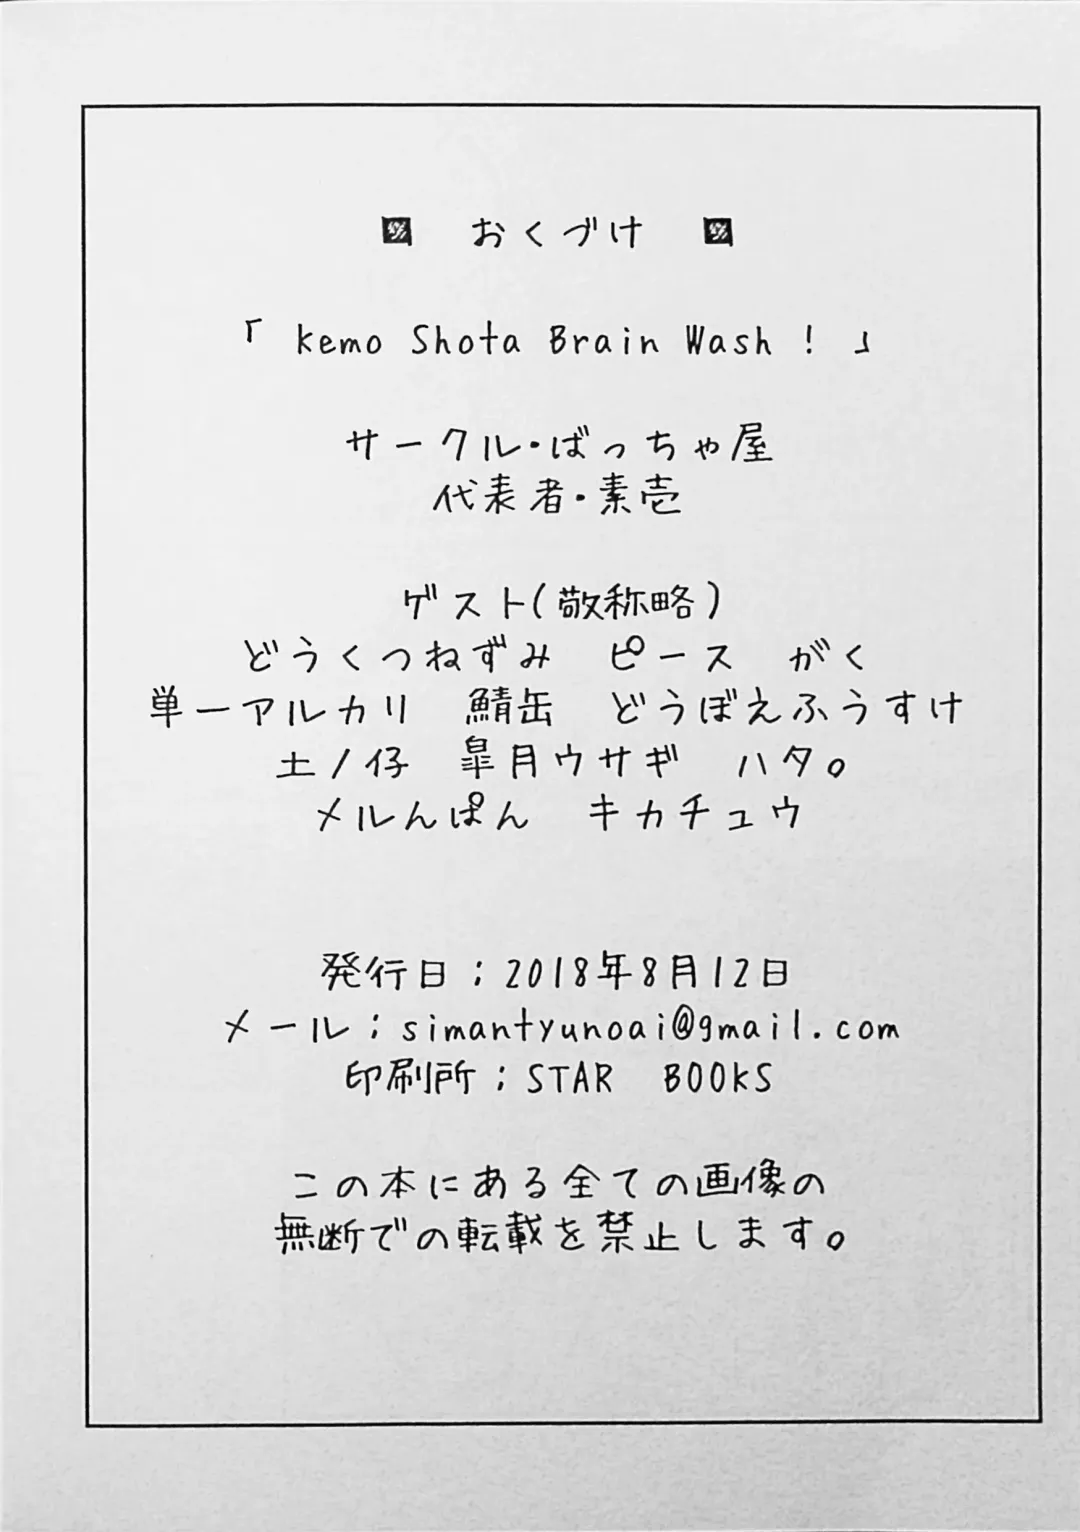 おくづけ
「 Kemo Shota Brain Wash ! 」
サークル・ばっちゃ屋
代表者・素壱
ゲスト(敬称略)
どうくつねずみ　ピース　がく
単一アルカリ　鯖缶　どうぼえふうすけ
土ノ仔　皐月ウサギ　ハタ。
メルんぱん　キカチュウ
発行日：2018年8月12日
メール：simantyunoai@gmail.com
印刷所：STAR　BOOKS
この本にある全ての画像の
無断での転載を禁止します。